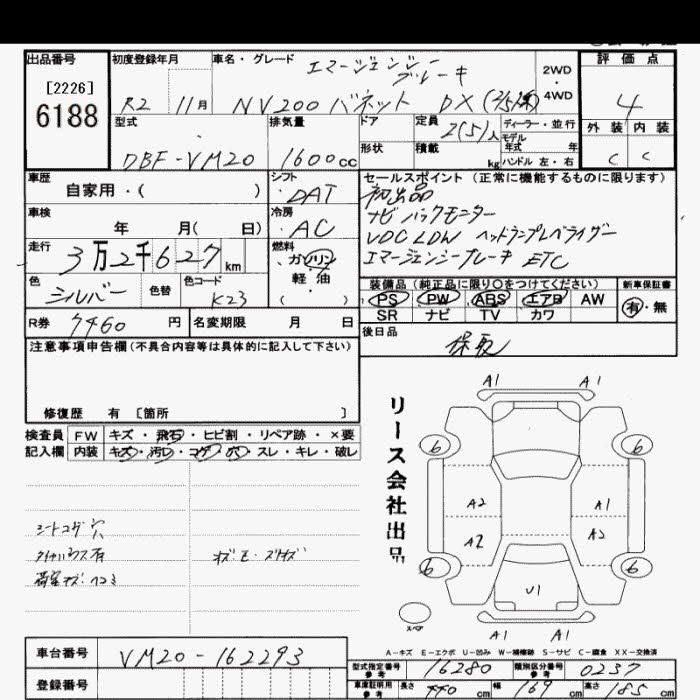 出品番号
[2226]
6188
初度登録年月
R2 11月
車名・グレード
エマージェンシーブレーキ
NV200 バネット DX (2/5人)
2WD・4WD
評価点
4
外装 内装
C C
型式
DBF-VM20
排気量
1600cc
ドア
定員
2(5)人
ディーラー・並行
モデル年式 年
形状
積載 kg
ハンドル 左・右
車歴
自家用・( )
シフト
DAT
セールスポイント (正常に機能するものに限ります)
初出品
ナビ バックモニター
VDC LDW ヘッドランプレベライザー
エマージェンシーブレーキ ETC
車検
年 月( 日)
冷房
AC
走行
3万2千627km
燃料
ガソリン
軽油
( )
色
シルバー
色替
色コード
K23
装備品 (純正品に限り○をつけてください)
新車保証書
PS PW ABS エアB AW
SR ナビ TV カワ
有・無
R券 7460円
名変期限 月 日
後日品
保取
注意事項申告欄(不具合内容等は具体的に記入して下さい)
修復歴 有 〔箇所 〕
検査員記入欄
FW キズ・飛石・ヒビ割・リペア跡・×要
内装 キズ・汚レ・コゲ・穴・スレ・キレ・破レ
シートコゲ穴
タイヤハウス有
荷室キズ・ヘコミ
リース会社出品
A1 A1
6 6
A2 A1
A2 A2
6 6
U1
スペア
A1 A1
A-キズ E-エクボ U-凹み W-補修跡 S-サビ C-腐食 XX-交換済
車台番号
VM20-162293
登録番号
型式指定番号 参考
16280
類別区分番号 参考
0237
車庫証明用 参考
長さ 440cm 幅 169cm 高さ 185cm